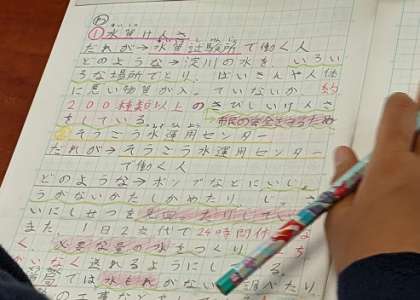 わ
①水質けんさ
だれが→水質試験所で働く人
どのような→淀川の水を いろい
ろな場所でとり、ばいきんや人体
に悪い物質が入っていないか 約
200種類以上のきびしいけんさ
をしている。市民の安全を守るため
②そうごう水運用センター
だれが→そうごう水運用センター
で働く人
どのような→ポンプなどにいじょ
うがないかたしかめたり、じっさ
いにしせつを見回ったりし
また、1日2交代で24時間
く、必要な量の水をつくり、
がいなく送れるようにし
では水もれがない 調べたり